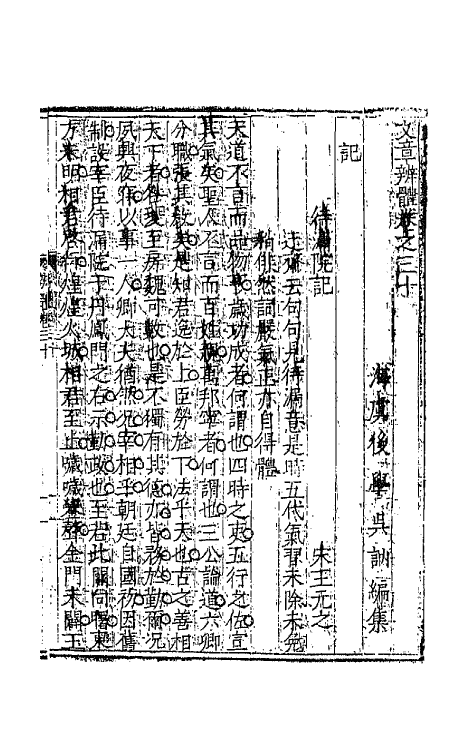 文章辨體卷之三十
海虞後學吳訥編集
記
待漏院記 宋王元之
迂齋云句句見待漏意是時五代氣習未除未免
稍俳然詞嚴氣正亦自得體
天道不言而品物亨歲功成者何謂也四時之吏五行之佐宣
其氣矣聖人不言而百姓親萬邦寧者何謂也三公論道六卿
分職張其教矣是知君逸於上臣勞於下法乎天也古之善相
天下者自咎夔至房魏可數也是不獨有其德亦皆務於勤爾況
夙興夜寐以事一人卿大夫猶然況宰相乎朝廷自國初因舊
制設宰臣待漏院于丹鳳門之右示勤政也至若北闕向曙東
方未明相君啓行煌煌火城相君至止噦噦鑾聲金門未闢玉